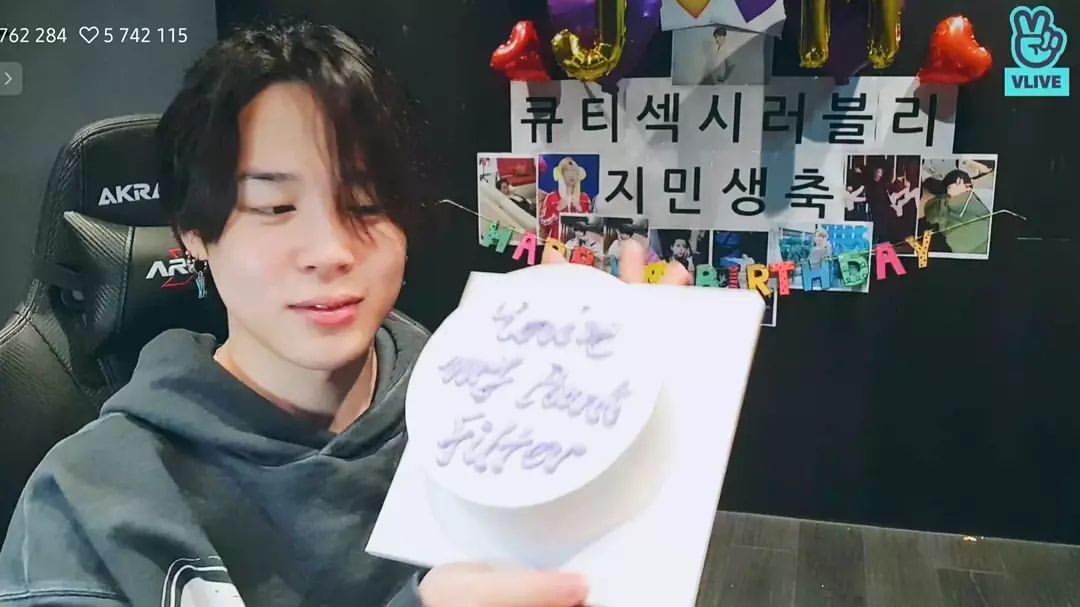 762 284 ♡ 5 742 115
VLIVE
큐티섹시러블리
지민생축
HAPPY BIRTHDAY
AKRA
AK
You're
my
Filter